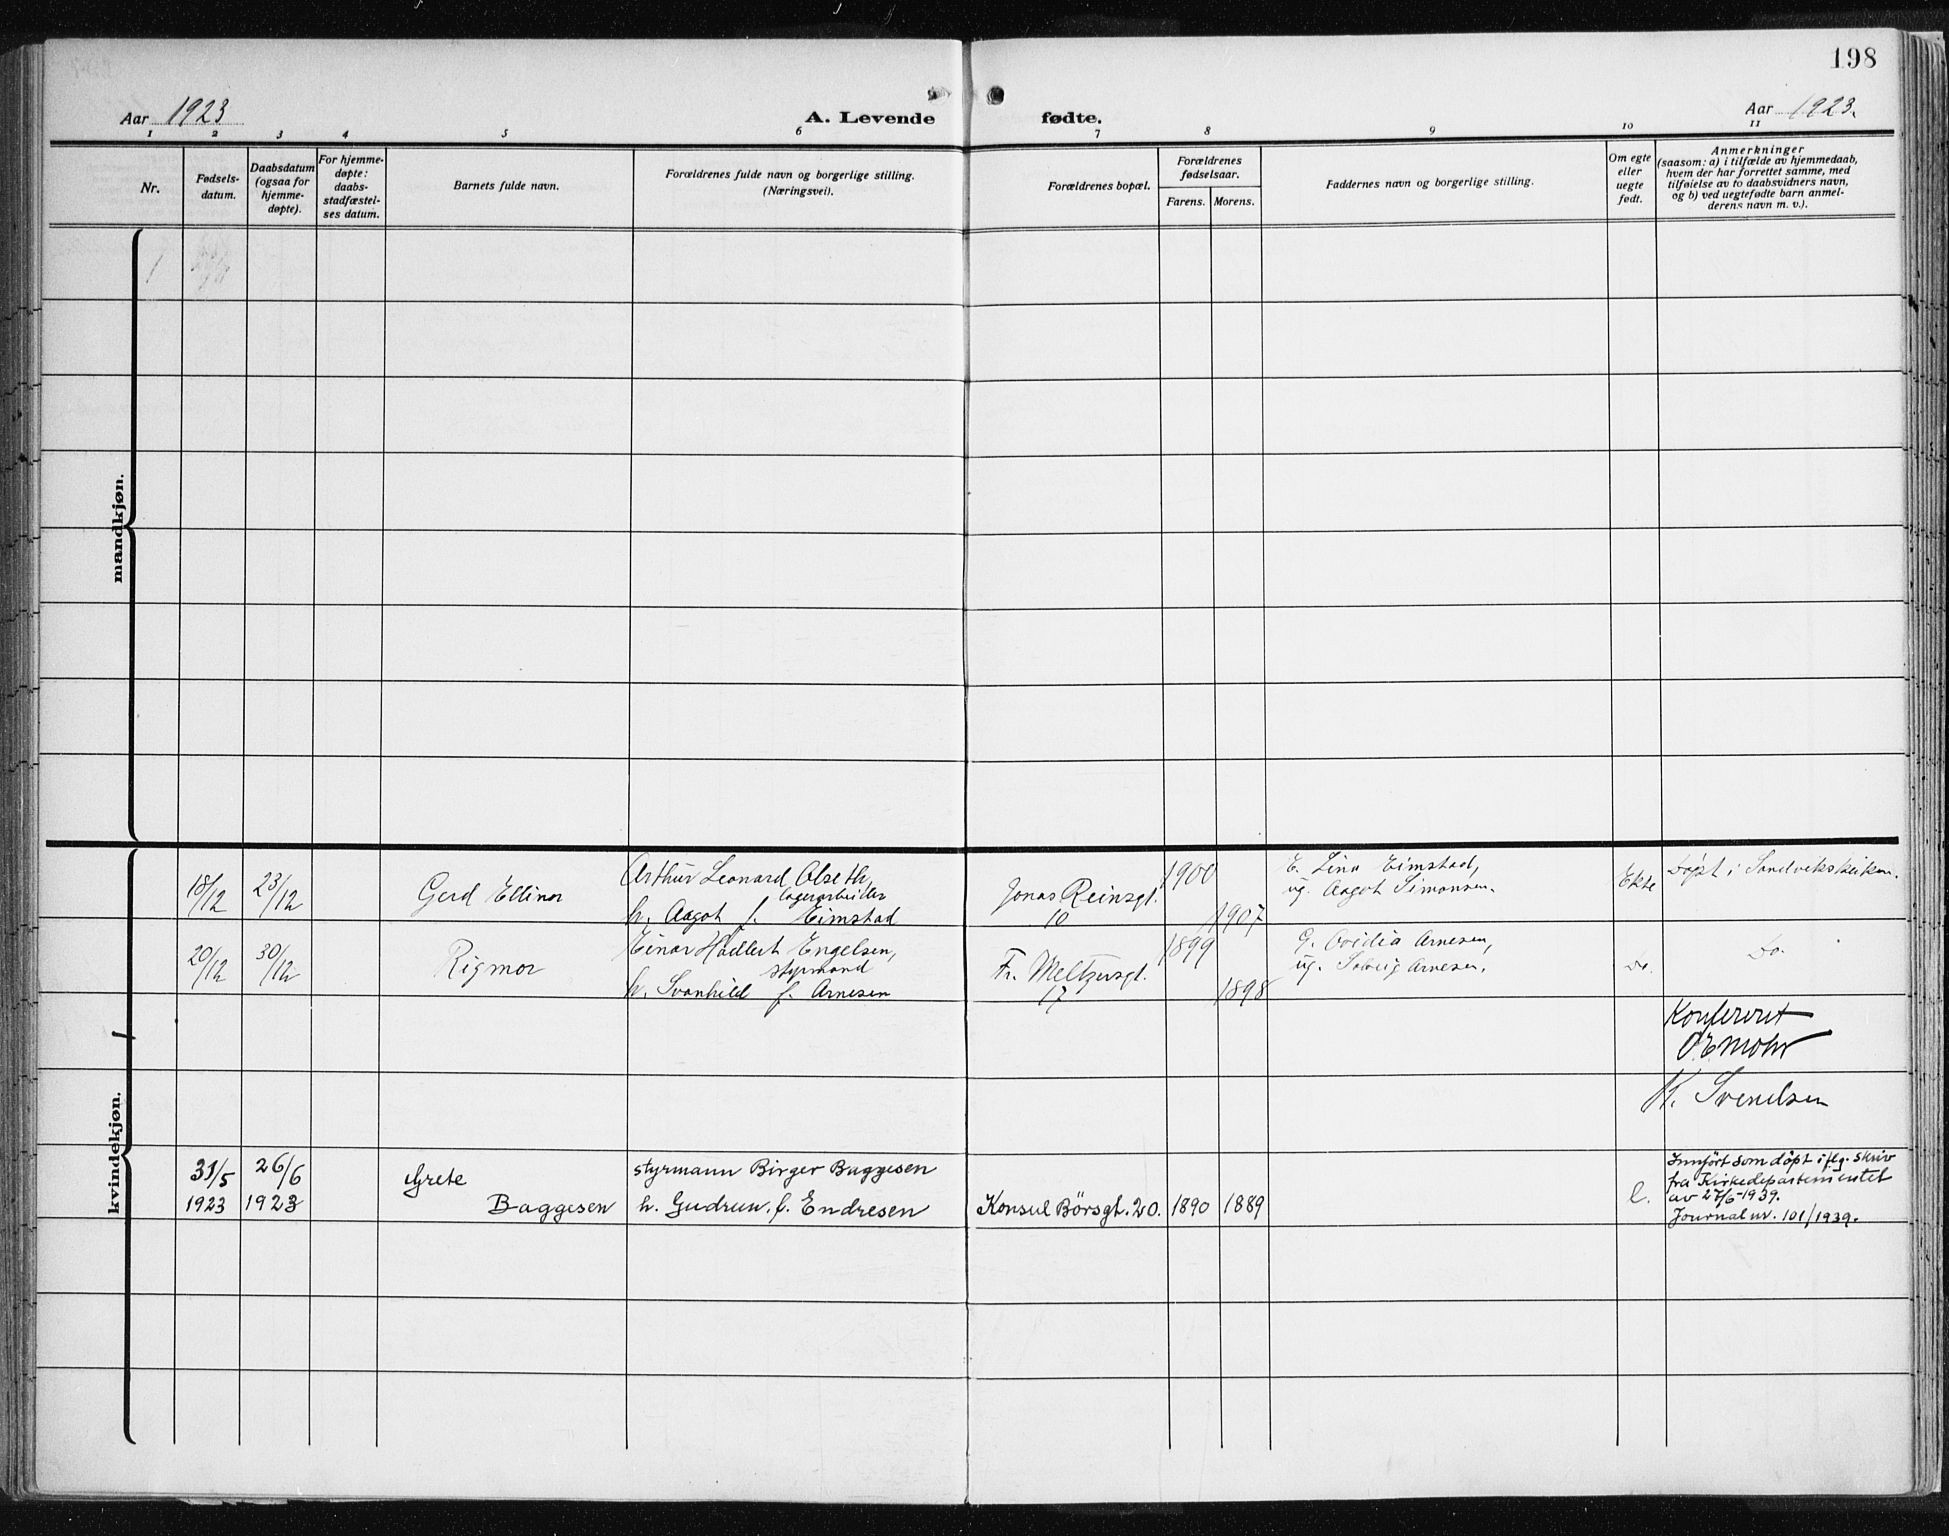 198
Aar 1923
A. Levende fødte.
Aar 1923.
1 2 3 4 5 6 7 8 9 10 11
Nr.
Fødsels-
datum.
Daabsdatum
(ogsaa for
hjemme-
døpte).
For hjemme-
døpte:
daabs-
stadfæstel-
ses datum.
Barnets fulde navn.
Forældrenes fulde navn og borgerlige stilling.
(Næringsvei).
Forældrenes bopæl.
Forældrenes
fødselsaar.
Farens. Morens.
Faddernes navn og borgerlige stilling.
Om egte
eller
uegte
født.
Anmerkninger
(saasom: a) i tilfælde av hjemmedaab,
hvem der har forrettet samme, med
tilføielse av to daabsvidners navn,
og b) ved uegtefødte barn anmel-
derens navn m. v.).
mandkjøn.
1
kvindekjøn.
18/12 23/12 Gerd Ellinor
Arthur Leonard Alseth,
lagerarbeider
h. Aagot f. Eimstad
Jonas Reinsgt.
10
1900
1907
E. Lina Eimstad,
ug. Aagot Simonsen.
Ekte
Döpt i Sandvikskirken.
20/12 30/12 Rigmor
Einar Hadlert Engelsen,
styrmand
h. Svanhild f. Arnesen
Fr. Meltzersgt.
17
1899
1898
G. Ovidia Arnesen,
ug. Solveig Arnesen.
do.
Do.
Konferert
O E Mohr
K. Svendsen
31/5 26/6
1923 1923
Grete
Baggesen
styrmann Birger Baggesen
h. Gudrun, f. Endresen
Konsul Börsgt. 20. 1890 1889
e.
Innfört som döpt iflg. skriv
fra Kirkedepartementet
av 27/6-1939.
Journal nr. 101/1939.